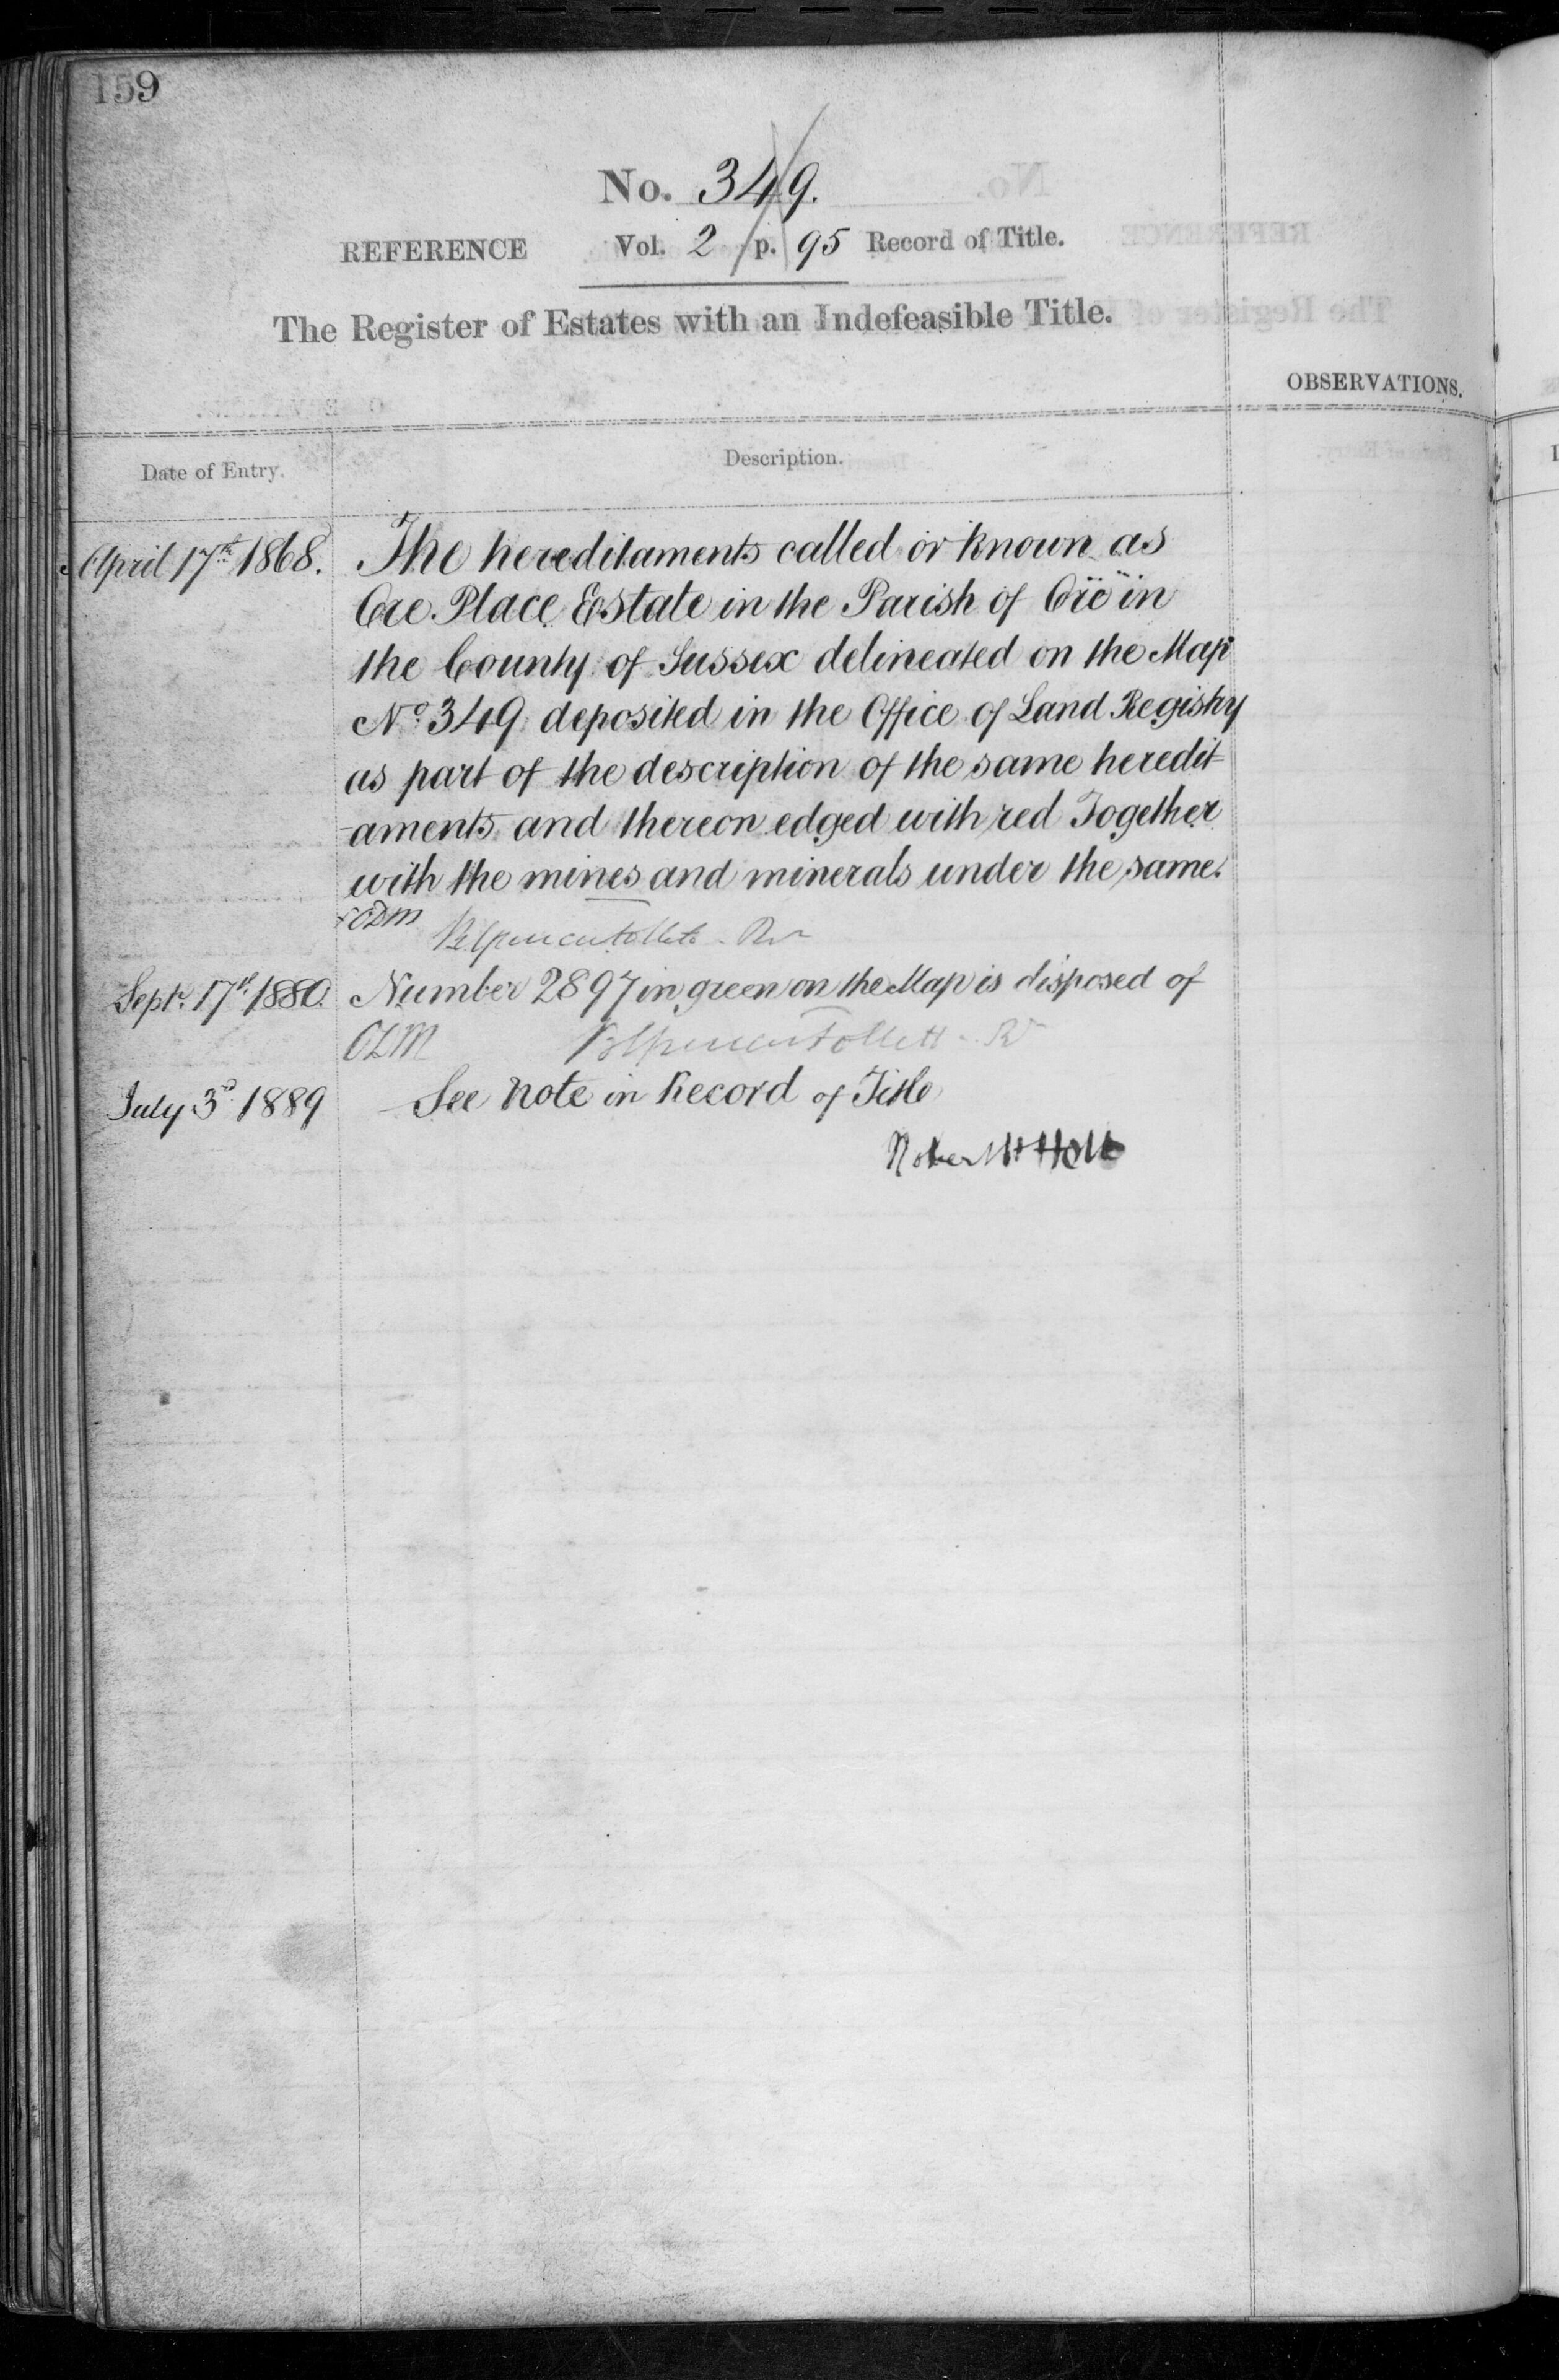 159
No. 349.
REFERENCE Vol. 2 p. 95 Record of Title.
The Register of Estates with an Indefeasible Title.
OBSERVATIONS.
Date of Entry. Description.
April 17th 1868. The hereditaments called or known as
Ore Place Estate in the Parish of Ore in
the County of Sussex delineated on the Map
No. 349 deposited in the Office of Land Registry
as part of the description of the same heredit-
-aments and thereon edged with red Together
with the mines and minerals under the same.
Sept. 17th 1880. Number 2897 in green on the Map is disposed of
July 3d 1889 See note in Record of Title
Robert H Holt